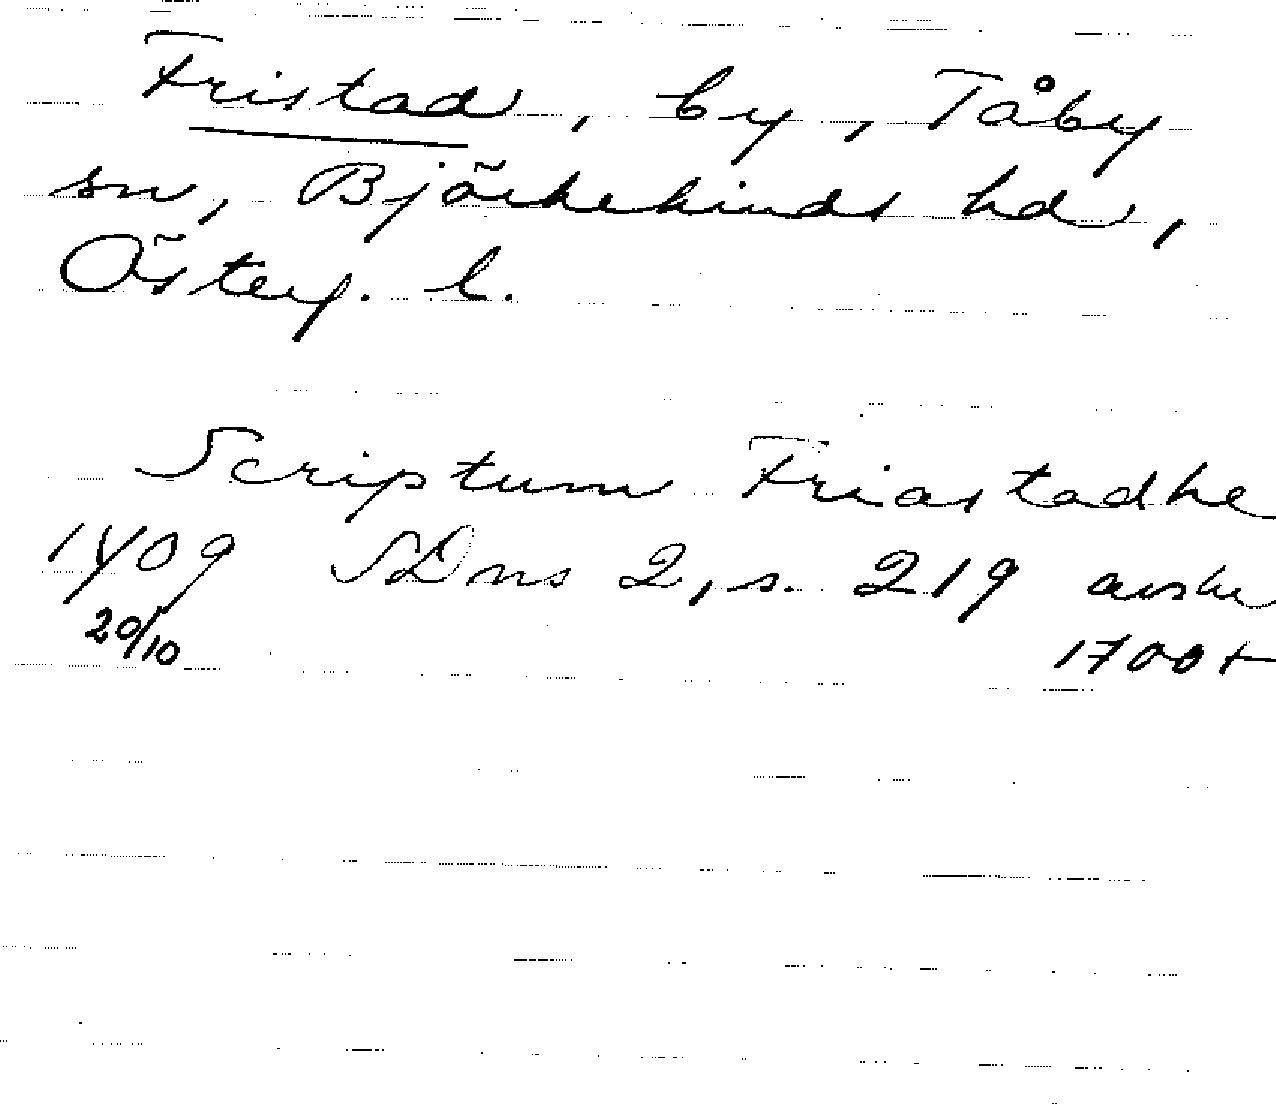 Fristad, by, Tåby
sn, Björkekinds hd,
Österg. l.
Scriptum Friastadhe
1409 SDns 2, s. 219 avskr
20/10 1700t